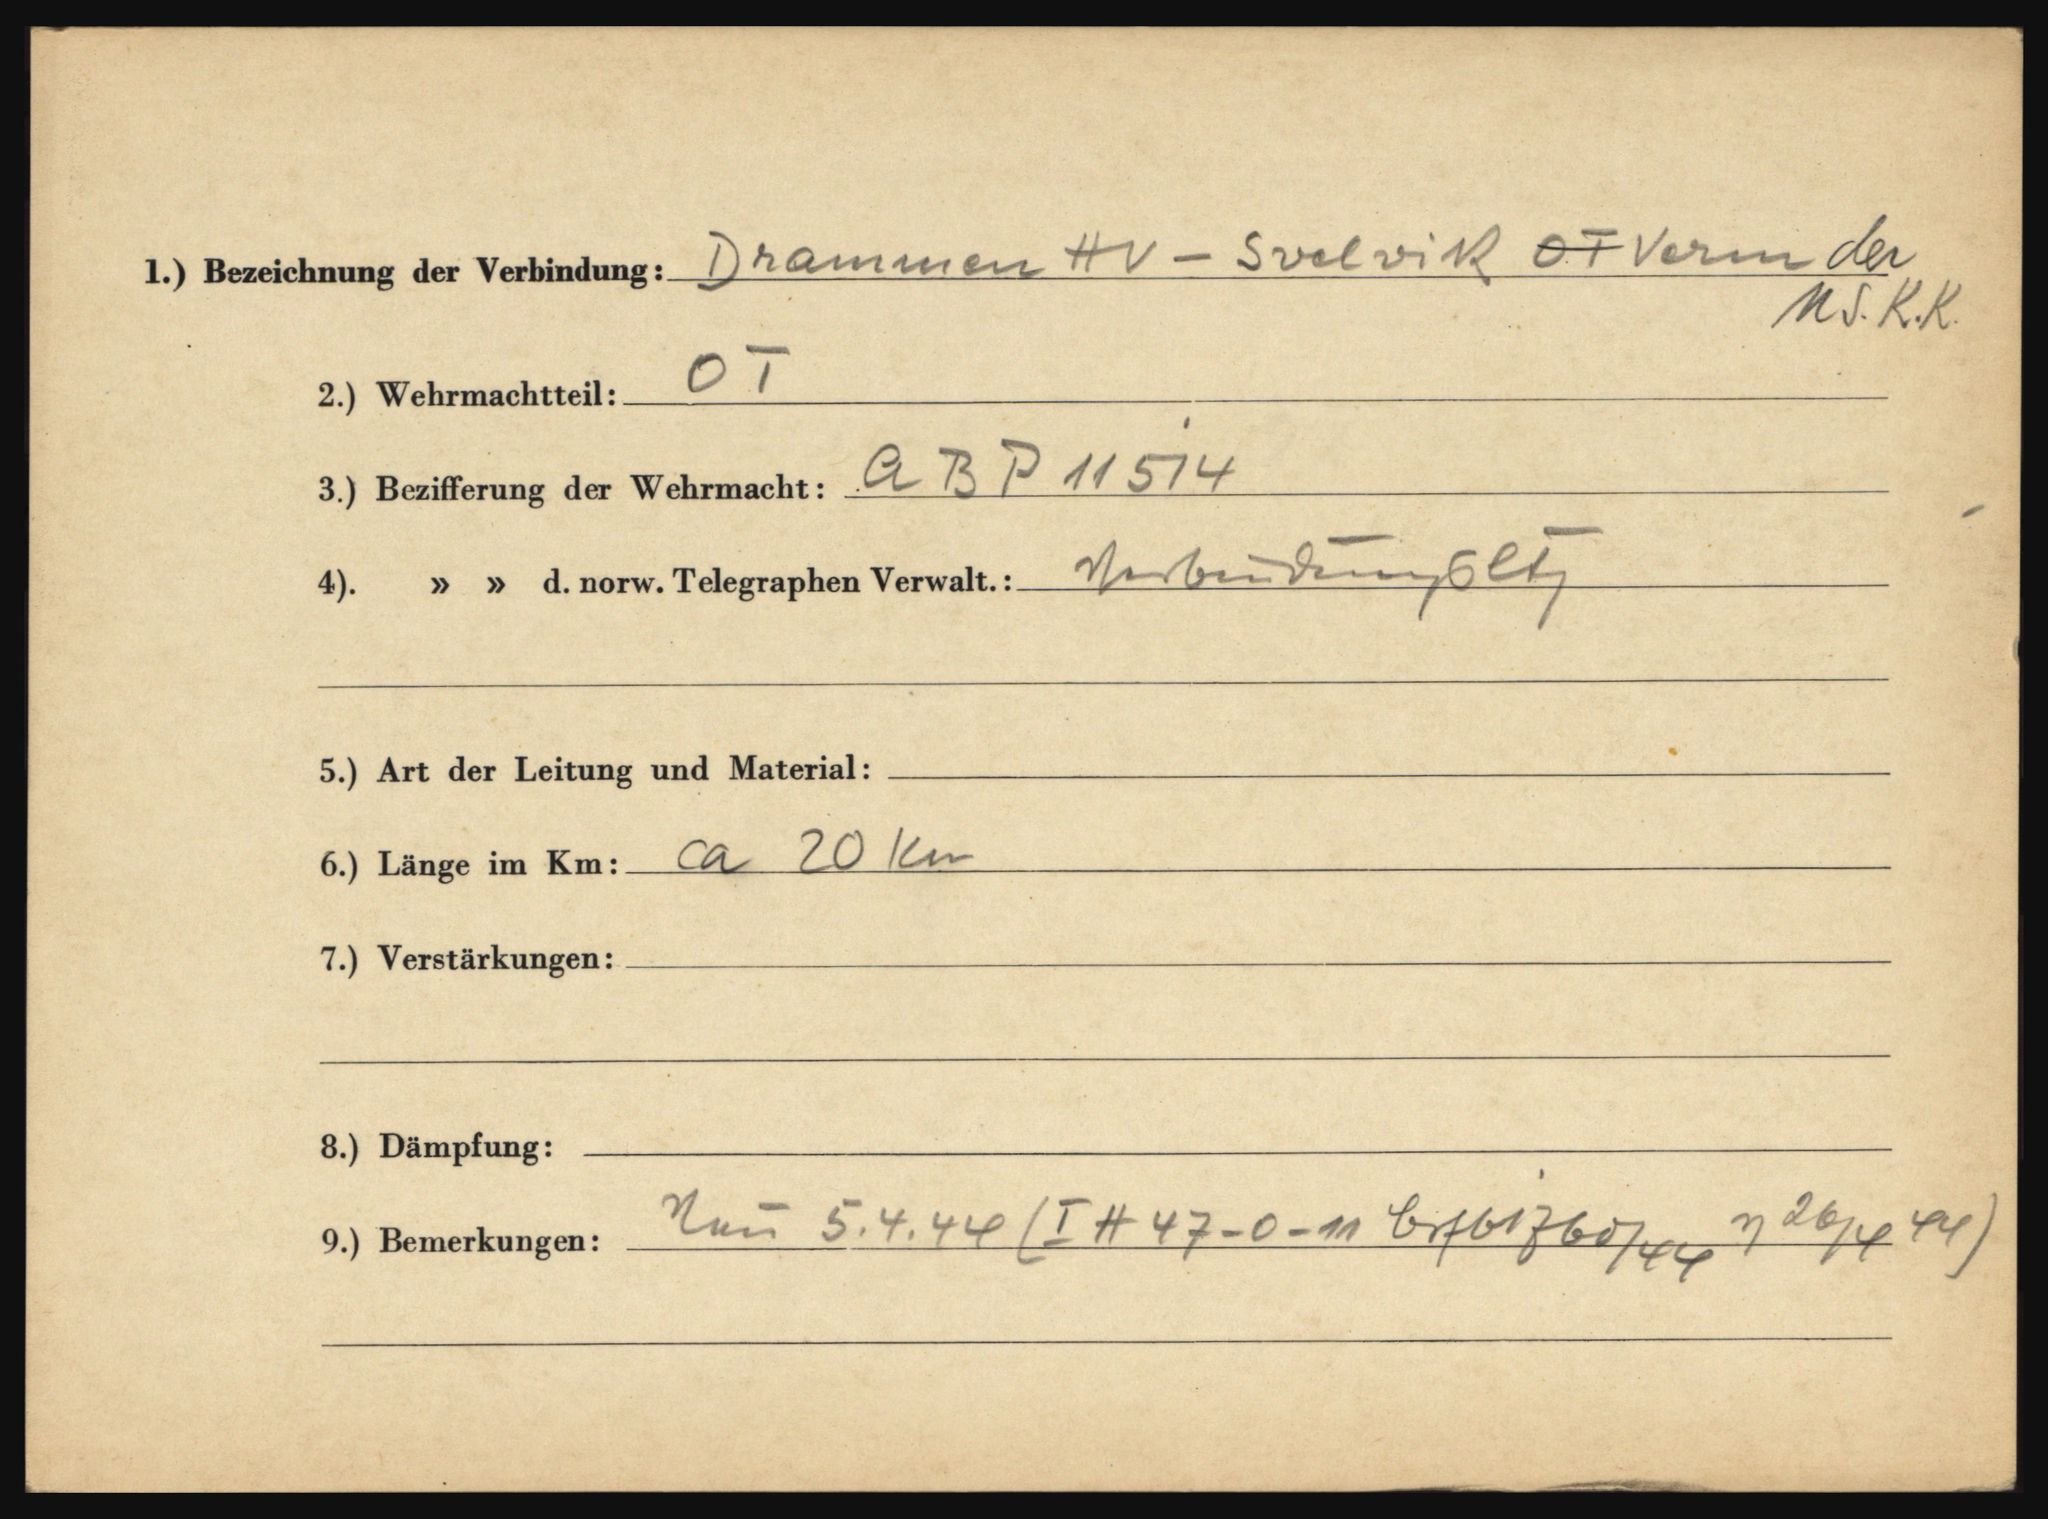 1.) Bezeichnung der Verbindung: Drammen HV – Svelvik OT Verm der
N.S.K.K.
2.) Wehrmachtteil: OT
3.) Bezifferung der Wehrmacht: ABP 11514
4). » » d. norw. Telegraphen Verwalt.: Verbindungsltg
5.) Art der Leitung und Material:
6.) Länge im Km: ca 20 Km
7.) Verstärkungen:
8.) Dämpfung:
9.) Bemerkungen: Neu 5.4.44 (I H 47-0-11 44 26/4 44)